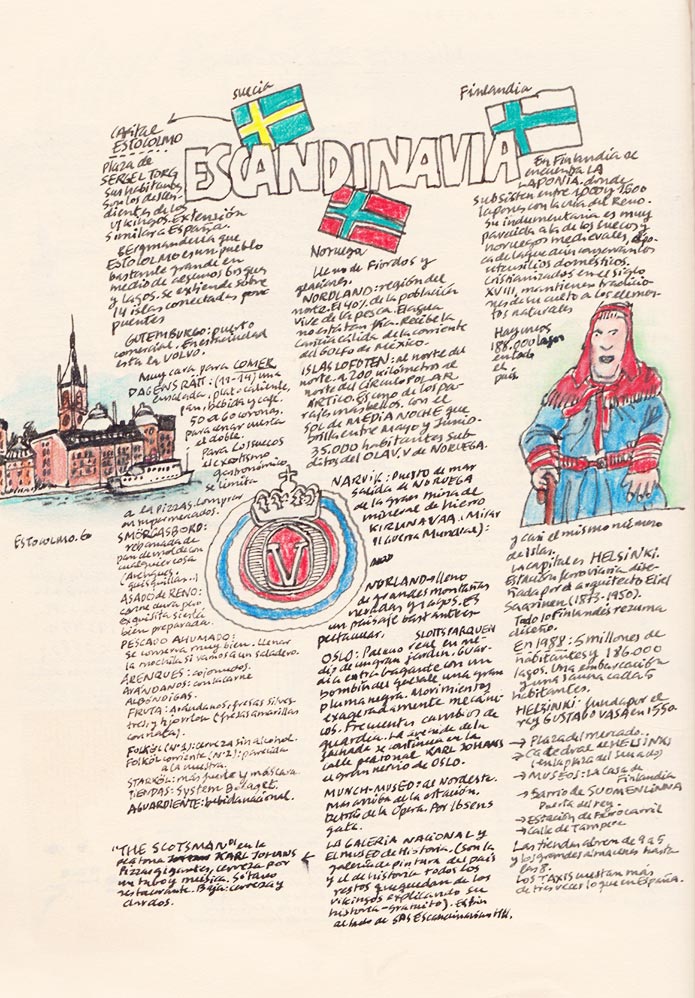 Suecia
Finlandia
ESCANDINAVIA
Capital
ESTOCOLMO
Plaza de
SERGEL TORG
sus habitantes
son los descen-
dientes de los
vikingos. Extensión
similar a España.
Bergman decía que
ESTOCOLMO es un pueblo
bastante grande en
medio de algunos bosques
y lagos. Se extiende sobre
14 islas conectadas por
puentes
GUTEMBURGO: puerto
comercial. En esta ciudad
esta la VOLVO.
Muy cara para COMER
DAGENS RÄTT: (11-14) una
ensalada, plato caliente,
pan, bebida y café.
50 a 60 coronas.
para cenar cuesta
el doble.
Para los suecos
el exotismo
gastronómico
se limita
a la PIZZAS. Comprar
en supermercados.
SMÖRGASBORD:
rebanada de
pan de molde con
cualquier cosa
(Arenques,
quisquillas...)
ASADO de RENO:
carne dura pero
exquisita si está
bien preparada.
PESCADO AHUMADO:
se conserva muy bien. Llenar
la mochila si vamos a un saladero.
ARENQUES: cojonudos.
ARÁNDANOS: con la carne
ALBÓNDIGAS.
FRUTA: Arándanos, fresas silves-
tres, y hjortron (fresas amarillas
con nata).
FOLKÖL (Nº1): cerveza sin alcohol.
Folköl corriente (Nº2): parecida
a la nuestra.
STARKÖL: más fuerte y más cara.
TIENDAS: System Bolaget.
AGUARDIENTE: bebida nacional.
"THE SCOTSMAN" en la
peatonal KARL JOHANS
Pizzas gigantes, cerveza por
un tubo y música. Sótano
restaurante. Bajo: cerveza y
dardos.
ESTOCOLMO. 60
Noruega
Lleno de Fiordos y
glaciares.
NORDLAND: región del
norte. El 40% de la población
vive de la pesca. El agua
no esta tan fría. Recibe la
caricia cálida de la corriente
del Golfo de México.
ISLAS LOFOTEN: al norte del
norte. a 200 kilómetros al
norte del CÍRCULO POLAR
ARTICO. Es uno de los pa-
rajes mas bellos, con el
SOL de MEDIA NOCHE que
brilla entre Mayo y Junio.
35.000 habitantes sub
ditos del OLAV. V de NORUEGA.
NARVIK: Puerto de mar
salida de NORUEGA
de la gran mina de
mineral de hierro
KIRUNAVAA. Mirar
II Guerra Mundial):
NORLAND: lleno
de grandes montañas
nevadas y lagos. Es
un paisaje bastante es
pectacular.
SLOTTSPARQUEN
OSLO: Palacio real en me-
dio de un gran jardín. Guar-
dia extravagante con un
bombín del que sale una gran
pluma negra. Movimientos
exageradamente mecáni-
cos. Frecuentes cambios de
guardia. La avenida de la
fachada se continua en la
calle peatonal KARL JOHANS
el gran nervio de OSLO.
MUNCH-MUSEO: al Nordeste.
mas arriba de la estación.
Detrás de la Opera. Por Ibsens
gata.
LA GALERÍA NACIONAL y
EL MUSEO de Historia. (son la
galería de pintura del país
y el de historia todos los
restos que quedan de los
vikingos explicando su
historia-gratuito). Están
al lado de SAS Escandinavian Htl.
En Finlandia se
encuentra LA
LAPONIA. donde
subsisten entre 2000 y 2600
lapones con la cría del Reno.
Su indumentaria es muy
parecida a la de los suecos y
noruegos medievales, épo-
ca de la que aún conservan los
utensilios domésticos.
Cristianizados en el siglo
XVIII, mantienen tradicio-
nes de un culto a los elemen-
tos naturales
Hay unos
188.000 lagos
en todo
el
país
y casi el mismo número
de islas.
La capital es HELSINKI.
Estación ferroviaria dise-
ñada por el arquitecto Eliel
Saarinen (1873-1950).
Todo lo Finlandés rezuma
diseño.
En 1988: 5 millones de
habitantes y 186.000
lagos. Una embarcación
y una sauna cada 5
habitantes.
HELSINKI: fundada por el
rey GUSTAVO VASA en 1550.
→ Plaza del mercado.
→ Catedral de HELSINKI
(en la plaza del Senado)
→ MUSEOS: La Casa de
Finlandia
→ Barrio de SUOMENLINNA
Puerta del rey.
→ Estación de Ferrocarril
→ Calle de Tampere
Las tiendas abren de 9 a 5
y los grandes almacenes hasta
las 8.
LOS TAXIS cuestan más
de tres veces lo que en España.